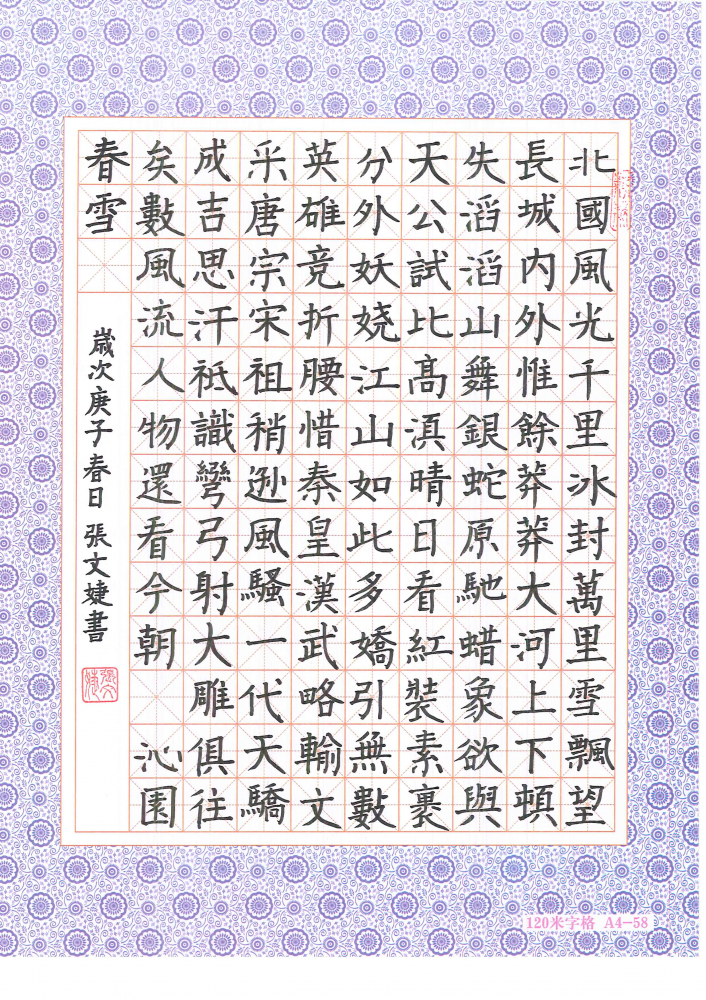 北國風光千里冰封萬里雪飄望
長城内外惟餘莽莽大河上下頓
失滔滔山舞銀蛇原馳蜡象欲與
天公試比髙滇晴日看紅裝素裹
分外妖娆江山如此多嬌引無數
英雄竞折腰惜秦皇漢武略輸文
采唐宗宋祖稍逊風騷一代天驕
成吉思汗祗識彎弓射大雕俱往
矣數風流人物還看今朝 沁園
春雪
歲次庚子春日 張文婕書
120米字格 A4-58